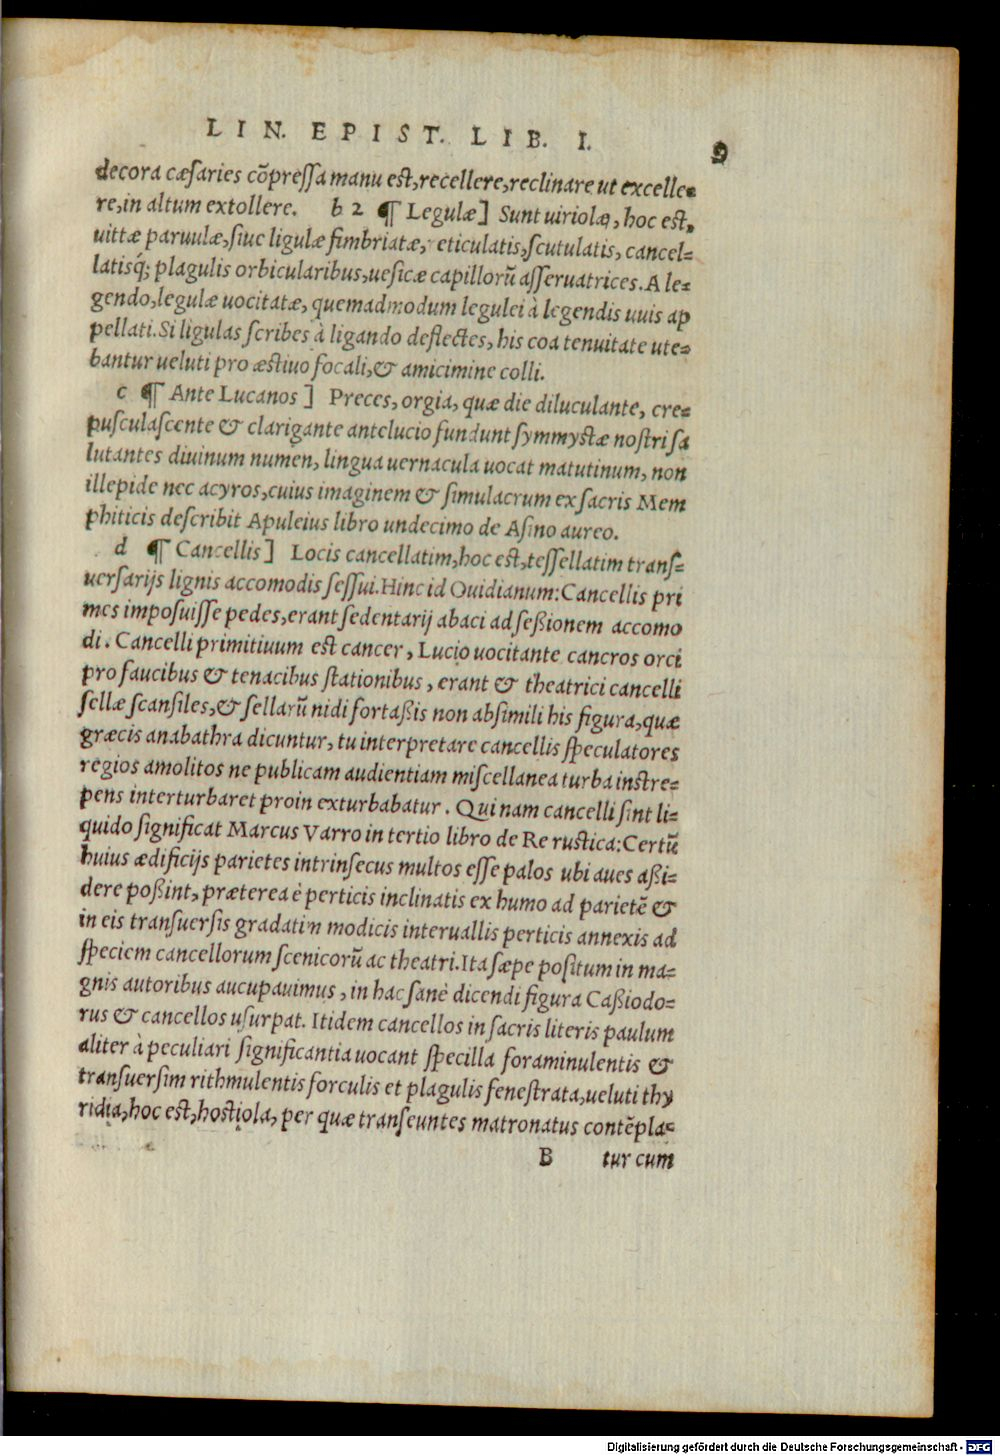 LIN. EPIST. LIB. I. 9
decora cæſaries cõpreſſa manu eſt, recellere, reclinare ut excelle-
re, in altum extollere. b 2 ¶ Legulæ] Sunt uiriolæ, hoc eſt,
uittæ paruulæ, ſiue ligulæ fimbriatæ, reticulatis, ſcutulatis, cancel-
latisq́; plagulis orbicularibus, ueſicæ capillorũ aſſeruatrices. A le-
gendo, legulæ uocitatæ, quemadmodum legulei à legendis uuis ap
pellati. Si ligulas ſcribes à ligando deflectes, his coa tenuitate ute-
bantur ueluti pro æſtiuo focali, & amicimine colli.
c ¶ Ante Lucanos] Preces, orgia, quæ die diluculante, cre-
puſculaſcente & clarigante antelucio fundunt ſymmyſtæ noſtri ſa
lutantes diuinum numen, lingua uernacula uocat matutinum, non
illepide nec acyros, cuius imaginem & ſimulacrum ex ſacris Mem
phiticis deſcribit Apuleius libro undecimo de Aſino aureo.
d ¶ Cancellis] Locis cancellatim, hoc eſt, teſſellatim tranſ-
uerſarijs lignis accomodis ſeſſui. Hinc id Ouidianum: Cancellis pri
mes impoſuiſſe pedes, erant ſedentarij abaci ad ſeßionem accomo
di. Cancelli primitiuum eſt cancer, Lucio uocitante cancros orci
pro faucibus & tenacibus ſtationibus, erant & theatrici cancelli
ſellæ ſcanſiles, & ſellarũ nidi fortaßis non abſimili his figura, quæ
græcis anabathra dicuntur, tu interpretare cancellis ſpeculatores
regios amolitos ne publicam audientiam miſcellanea turba inſtre-
pens interturbaret proin exturbabatur. Qui nam cancelli ſint li-
quido ſignificat Marcus Varro in tertio libro de Re ruſtica: Certũ
huius ædificijs parietes intrinſecus multos eſſe palos ubi aues aßi-
dere poßint, præterea è perticis inclinatis ex humo ad parietẽ &
in eis tranſuerſis gradatim modicis interuallis perticis annexis ad
ſpeciem cancellorum ſcenicorũ ac theatri. Ita ſæpe poſitum in ma-
gnis autoribus aucupauimus, in hac ſanè dicendi figura Caßiodo-
rus & cancellos uſurpat. Itidem cancellos in ſacris literis paulum
aliter à peculiari ſignificantia uocant ſpecilla foraminulentis &
tranſuerſim rithmulentis forculis et plagulis feneſtrata, ueluti thy
ridia, hoc eſt, hoſtiola, per quæ tranſeuntes matronatus contẽpla-
B tur cum
Digitalisierung gefördert durch die Deutsche Forschungsgemeinschaft - DFG